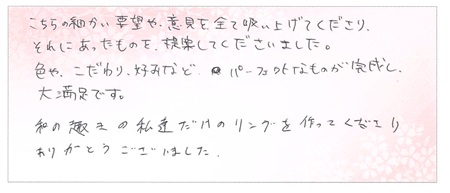 こちらの細かい要望や、意見を全て吸い上げてくださり、
それにあったものを、提案してくださいました。
色や、こだわり、好みなど、パーフェクトなものが完成し、
大満足です。
和の趣きの私達だけのリングを作ってくださり
ありがとうございました。